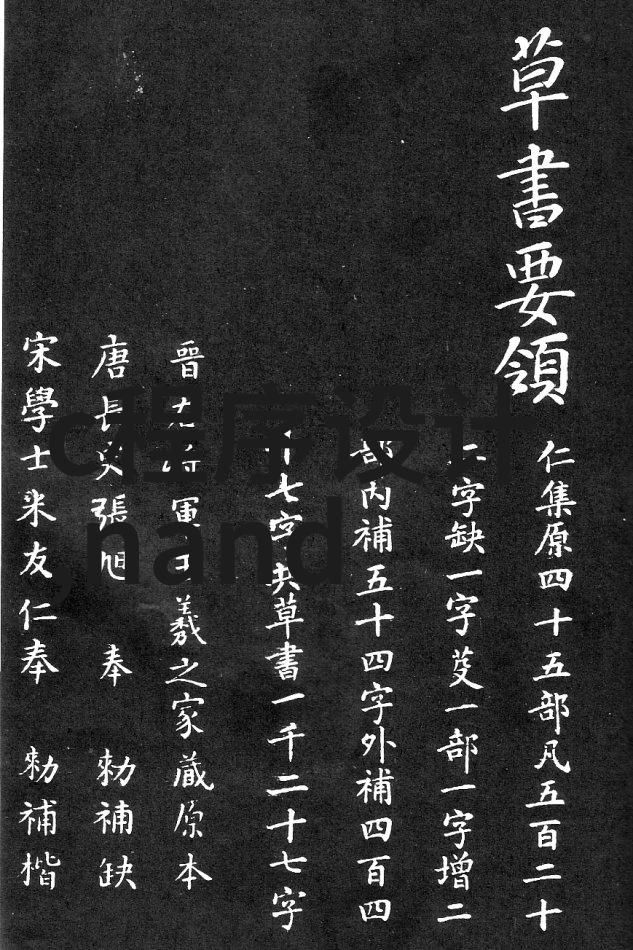 草書要領
仁集原四十五部凡五百二十
字缺一字芟一部一字增二
部内補五十四字外補四百四
十七字共草書一千二十七字
晉右將軍王羲之家藏原本
唐長史張旭　奉　勑補缺
宋學士米友仁奉　勑補楷
c程序设计
,nand